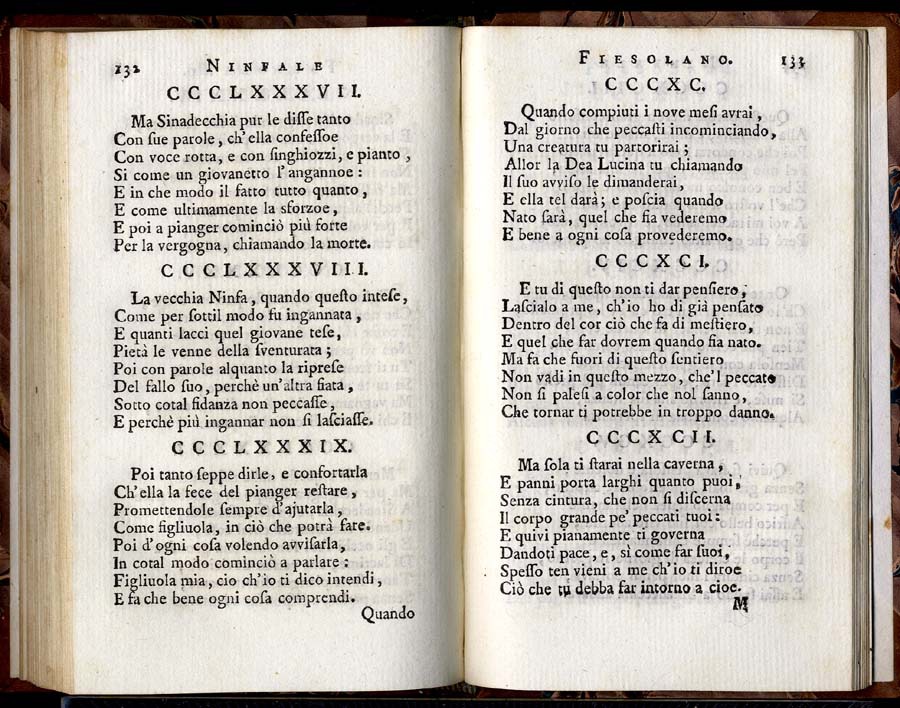 132 NINFALE
CCCLXXXVII.
Ma Sinadecchia pur le diſſe tanto
Con ſue parole, ch'ella confeſſoe
Con voce rotta, e con ſinghiozzi, e pianto,
Si come un giovanetto l'angannoe:
E in che modo il fatto tutto quanto,
E come ultimamente la sforzoe,
E poi a pianger cominciò più forte
Per la vergogna, chiamando la morte.
CCCLXXXVIII.
La vecchia Ninfa, quando queſto inteſe,
Come per ſottil modo fu ingannata,
E quanti lacci quel giovane teſe,
Pietà le venne della ſventurata;
Poi con parole alquanto la ripreſe
Del fallo ſuo, perchè un'altra fiata,
Sotto cotal fidanza non peccaſſe,
E perchè più ingannar non ſi laſciaſſe.
CCCLXXXIX.
Poi tanto ſeppe dirle, e confortarla
Ch'ella la fece del pianger reſtare,
Promettendole ſempre d'ajutarla,
Come figliuola, in ciò che potrà fare.
Poi d'ogni coſa volendo avviſarla,
In cotal modo cominciò a parlare:
Figliuola mia, cio ch'io ti dico intendi,
E fa che bene ogni coſa comprendi.
Quando
FIESOLANO. 133
CCCXC.
Quando compiuti i nove meſi avrai,
Dal giorno che peccaſti incominciando,
Una creatura tu partorirai;
Allor la Dea Lucina tu chiamando
Il ſuo avviſo le dimanderai,
E ella tel darà; e poſcia quando
Nato ſarà, quel che fia vederemo
E bene a ogni coſa provederemo.
CCCXCI.
E tu di queſto non ti dar penſiero,
Laſcialo a me, ch'io ho di già penſato
Dentro del cor ciò che fa di meſtiero,
E quel che far dovrem quando fia nato.
Ma fa che fuori di queſto ſentiero
Non vadi in queſto mezzo, che'l peccato
Non ſi paleſi a color che nol ſanno,
Che tornar ti potrebbe in troppo danno.
CCCXCII.
Ma ſola ti ſtarai nella caverna,
E panni porta larghi quanto puoi,
Senza cintura, che non ſi diſcerna
Il corpo grande pe' peccati tuoi:
E quivi pianamente ti governa
Dandoti pace, e, sì come far ſuoi,
Speſſo ten vieni a me ch'io ti diroe
Ciò che tu debba far intorno a cioe.
M